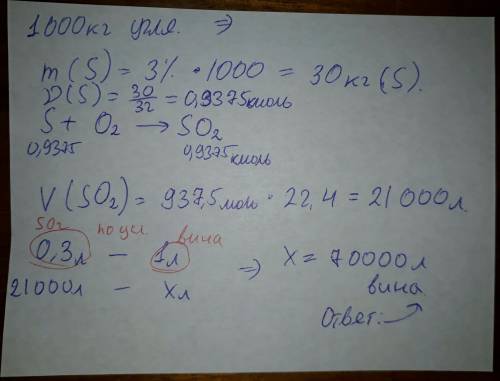 1000кг угля. ⇒
m(S) = 3% · 1000 = 30кг(S).
ν(S) = 30/32 = 0,9375кмоль
S + O₂ → SO₂
0,9375 0,9375кмоль
V(SO₂) = 937,5моль · 22,4 = 21000л.
SO₂ по усл. вина
0,3л – 1л ⇒ X = 70000л
21000л – Xл вина
Ответ: